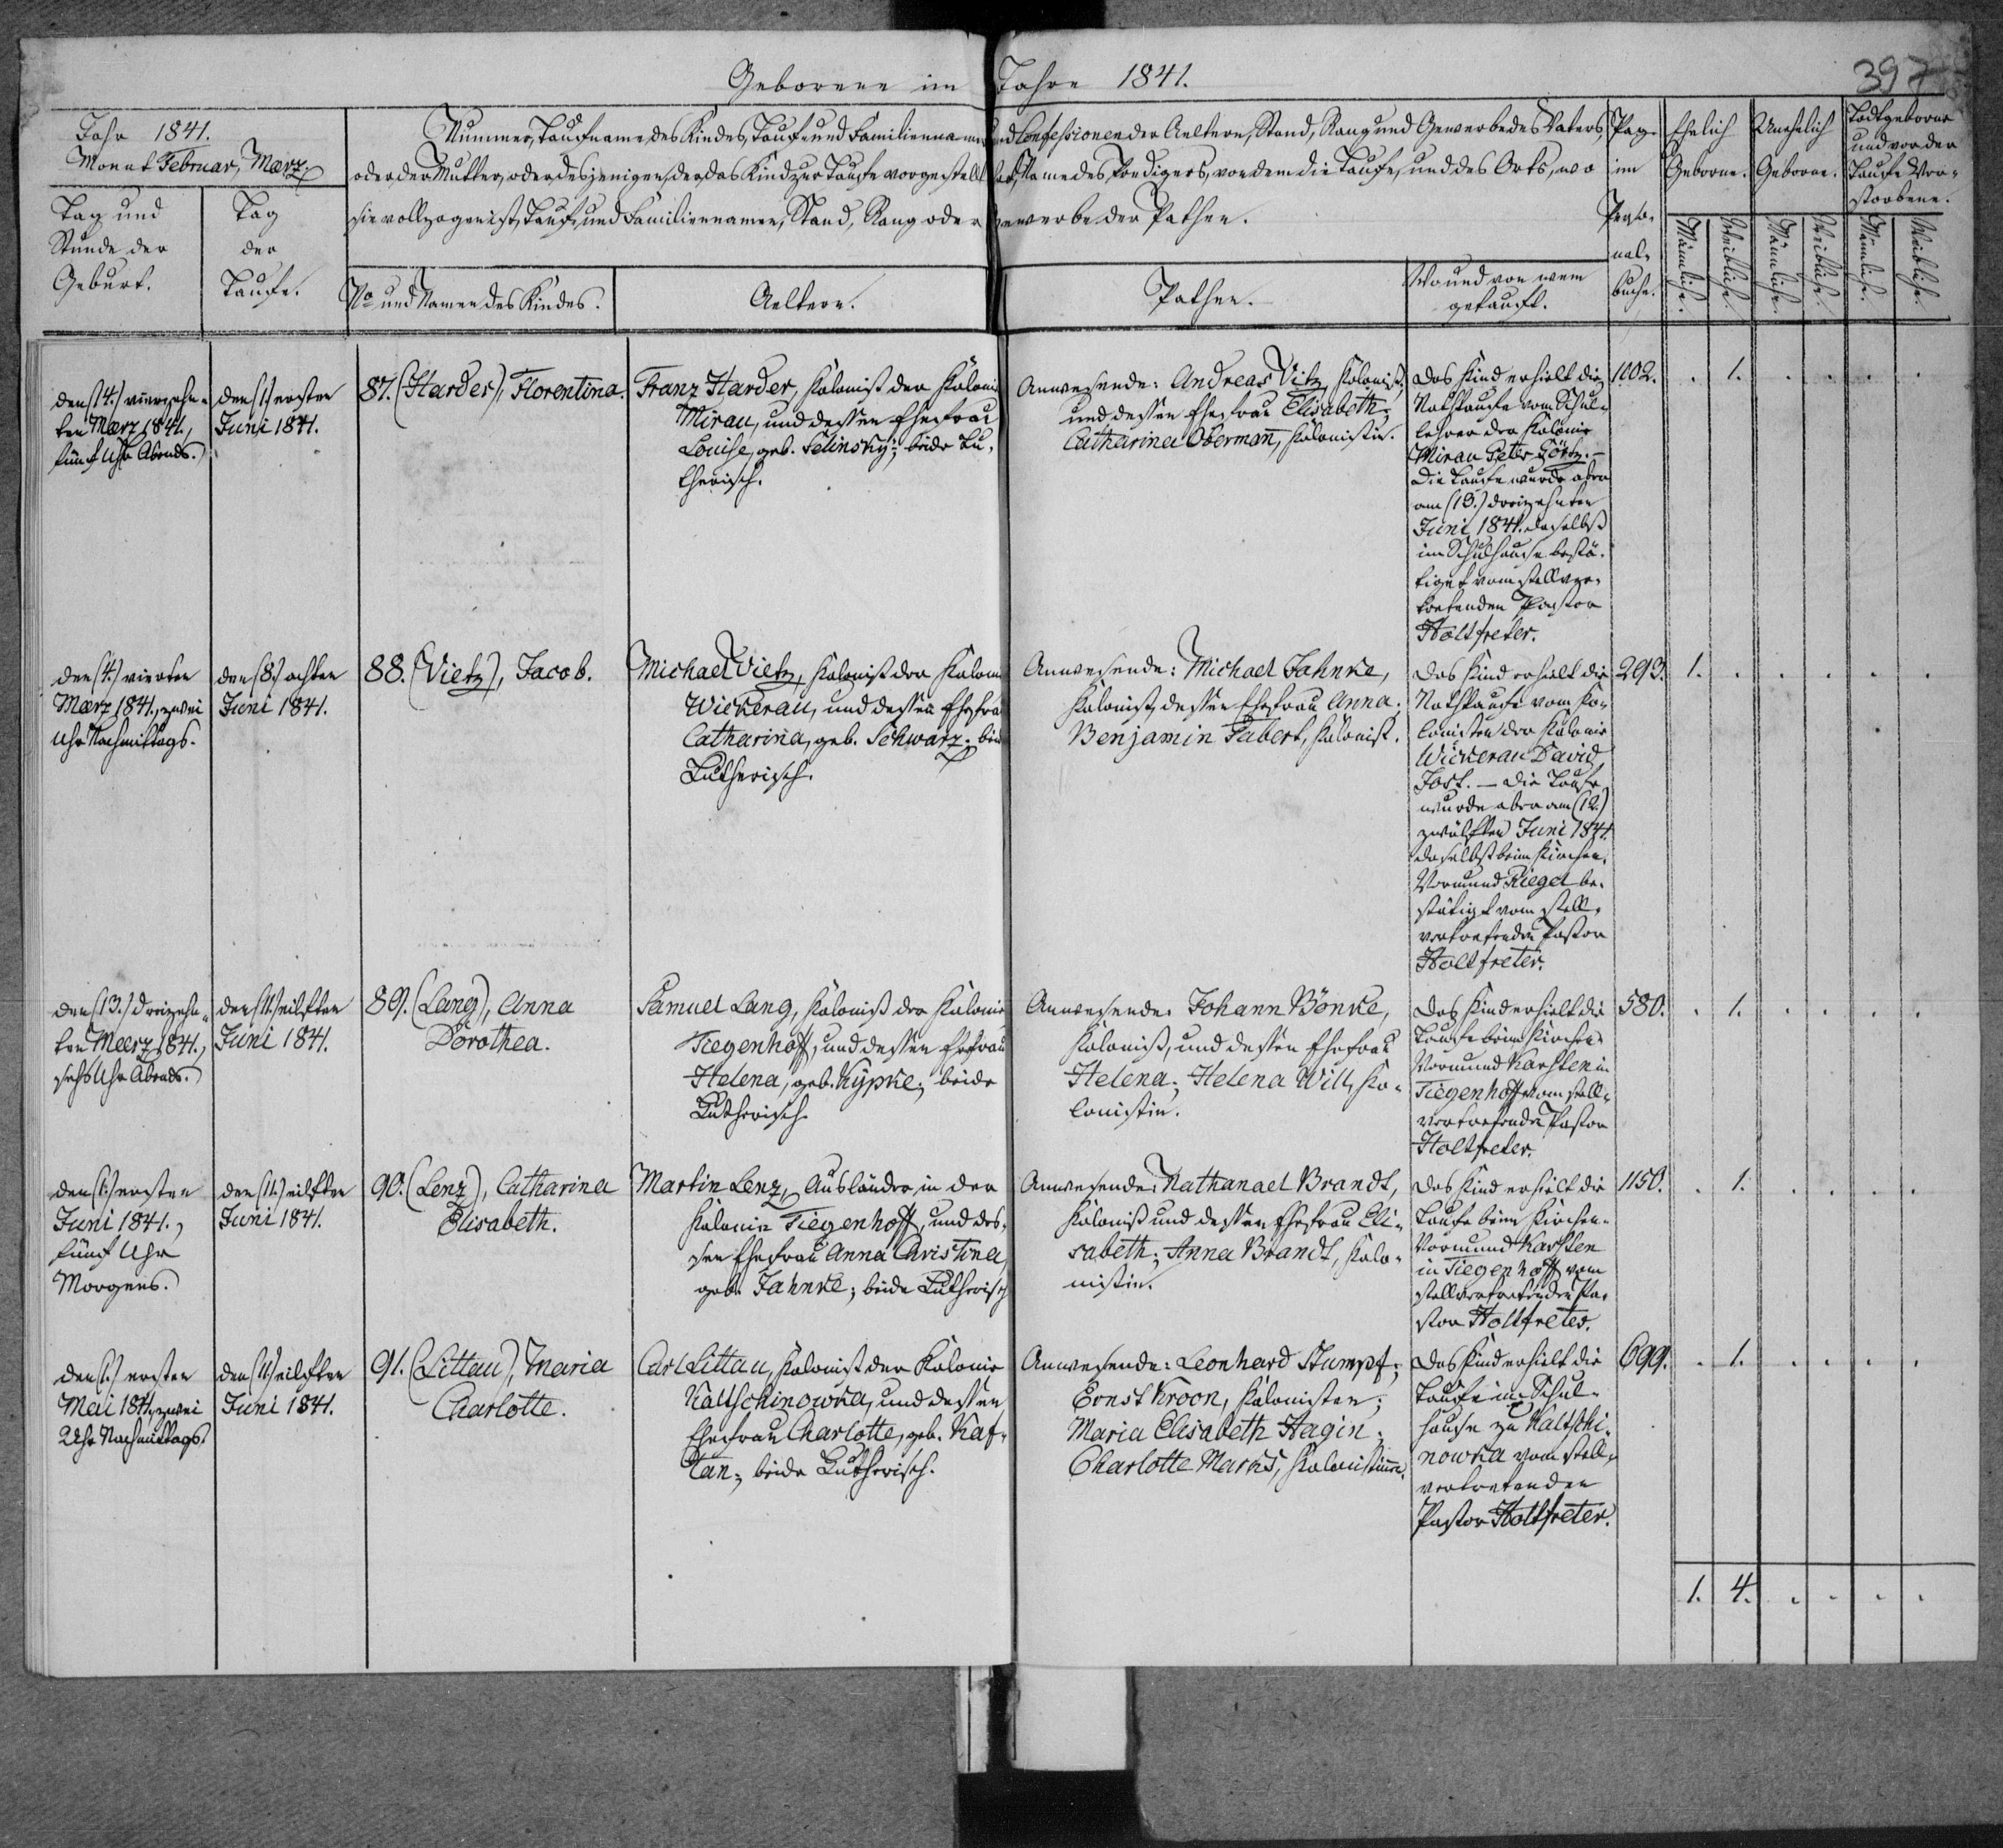 Geborene im Jahre 1841.
397
Jahr 1841.
Monat Februar, Maerz.
Tag und
Stunde der
Geburt.
Tag
der
Taufe.
Nummer, Taufname des Kindes, Tauf- und Familienname und Confessionen der Aeltern, Stand, Rang und Gewerbe des Vaters,
oder der Mutter, oder desjenigen, der das Kind zur Taufe vorgestellt hat, Name des Predigers, von dem die Taufe, und des Orts, wo
sie vollzogen ist, Tauf- und Familiennamen, Stand, Rang oder Gewerbe der Pathen.
No und Namen des Kindes.
Aeltern.
Pathen.
Wo und von wem
getauft.
Pag.
im
Perso-
nal-
buche.
Ehelich
Geborne.
Unehelich
Geborne.
Todtgeborne
und vor der
Taufe Ver-
storbene.
Männliche.
Weibliche.
Männliche.
Weibliche.
Männliche.
Weibliche.
den (14.) vierzehn-
ten Maerz 1841.,
fünf Uhr Abends.
den (1.) ersten
Juni 1841.
87. (Harder), Florentina.
Franz Harder, Kolonist der Kolonie
Mirau, und dessen Ehefrau
Louise, geb. Selinsky; beide Lu-
therisch.
Anwesende: Andreas Vitz, Kolonist,
und dessen Ehefrau Elisabeth;
Catharina Obermañ, Kolonistin.
Das Kind erhielt die
Nothtaufe vom Schul-
lehrer der Kolonie
Mirau Peter Görtz. —
Die Taufe wurde aber
am (13.) dreizehnten
Juni 1841. daselbst
im Schulhause bestä-
tiget vom stellver-
tretenden Pastor
Holtfreter.
1102.
. 1. . . . .
den (4.) vierten
Maerz 1841., zwei
Uhr Nachmittags.
den (8.) achten
Juni 1841.
88. (Vietz), Jacob.
Michael Vietz, Kolonist der Kolonie
Wickerau, und dessen Ehefrau
Catharina, geb. Schwarz; beide
Lutherisch.
Anwesende: Michael Jahnke,
Kolonist, dessen Ehefrau Anna;
Benjamin Tabert, Kolonist.
Das Kind erhielt die
Nothtaufe vom Ko-
lonisten der Kolonie
Wickerau David
Jost. — Die Taufe
wurde aber am (12.)
zwölften Juni 1841.
daselbst beim Kirchen-
Vormund Riegel be-
stätigt vom stell-
vertretenden Pastor
Holtfreter.
293.
1. . . . . .
den (13.) dreizehn-
ten Maerz 1841.,
sechs Uhr Abends.
den (11.) eilften
Juni 1841.
89. (Lang), Anna
Dorothea.
Samuel Lang, Kolonist der Kolonie
Tiegenhoff, und dessen Ehefrau
Helena, geb. Kypke; beide
Lutherisch.
Anwesende: Johann Bönke,
Kolonist, und dessen Ehefrau
Helena; Helena Will, Ko-
lonistin.
Das Kind erhielt die
Taufe beim Kirchen-
Vormund Karsten in
Tiegenhoff vom stell-
vertretenden Pastor
Holtfreter.
580.
. 1. . . . .
den (1.) ersten
Juni 1841.,
fünf Uhr
Morgens.
den (11.) eilften
Juni 1841.
90. (Lenz), Catharina
Elisabeth.
Martin Lenz, Ausländer in der
Kolonie Tiegenhoff, und des-
sen Ehefrau Anna Christina,
geb. Jahnke; beide Lutherisch
Anwesende: Nathanael Brandt,
Kolonist und dessen Ehefrau Eli-
sabeth; Anna Brandt, Kolo-
nistin.
Das Kind erhielt die
Taufe beim Kirchen-
Vormund Karsten
in Tiegenhoff vom
stellvertretenden Pa-
stor Holtfreter.
1150.
. 1. . . . .
den (1.) ersten
Mai 1841., zwei
Uhr Nachmittags.
den (11.) eilften
Juni 1841.
91. (Littau), Maria
Charlotte.
Carl Littau, Kolonist der Kolonie
Kaltschinowka, und dessen
Ehefrau Charlotte, geb. Kaf-
tan; beide Lutherisch.
Anwesende: Leonhard Stumpf;
Ernst Kroon, Kolonisten;
Maria Elisabeth Hagin;
Charlotte Marks, Kolonistinen.
Das Kind erhielt die
Taufe im Schul-
hause zu Kaltschi-
nowka vom stell-
vertretenden
Pastor Holtfreter.
699.
. 1. . . . .
1. 4. . . . .